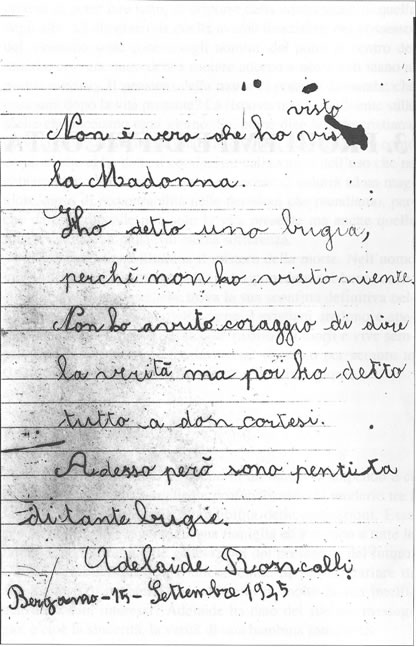 visto
Non è vero che ho vis
la Madonna.
Ho detto una bugia,
perchè non ho visto niente.
Non ho avuto coraggio di dire
la verità ma poi ho detto
tutto a don cortesi.
Adesso però sono pentita
di tante bugie.
Adelaide Roncalli
Bergamo - 15 - Settembre 1945